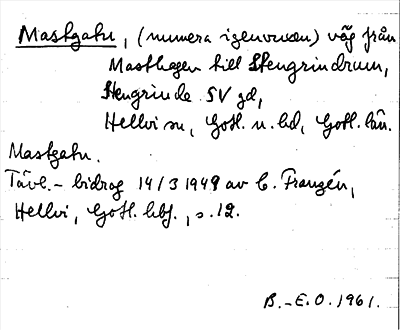 Mastgatu, (numera igenvuxen) väg från
Masthagen till Stengrindrum,
Stengrinde SV gd,
Hellvi sn, Gotl. n. hd, Gotl. län.
Mastgatu.
Tävl.-bidrag 14/3 1949 av C. Franzén,
Hellvi, Gotl. hbf., s. 12.
B.-E.O. 1961.